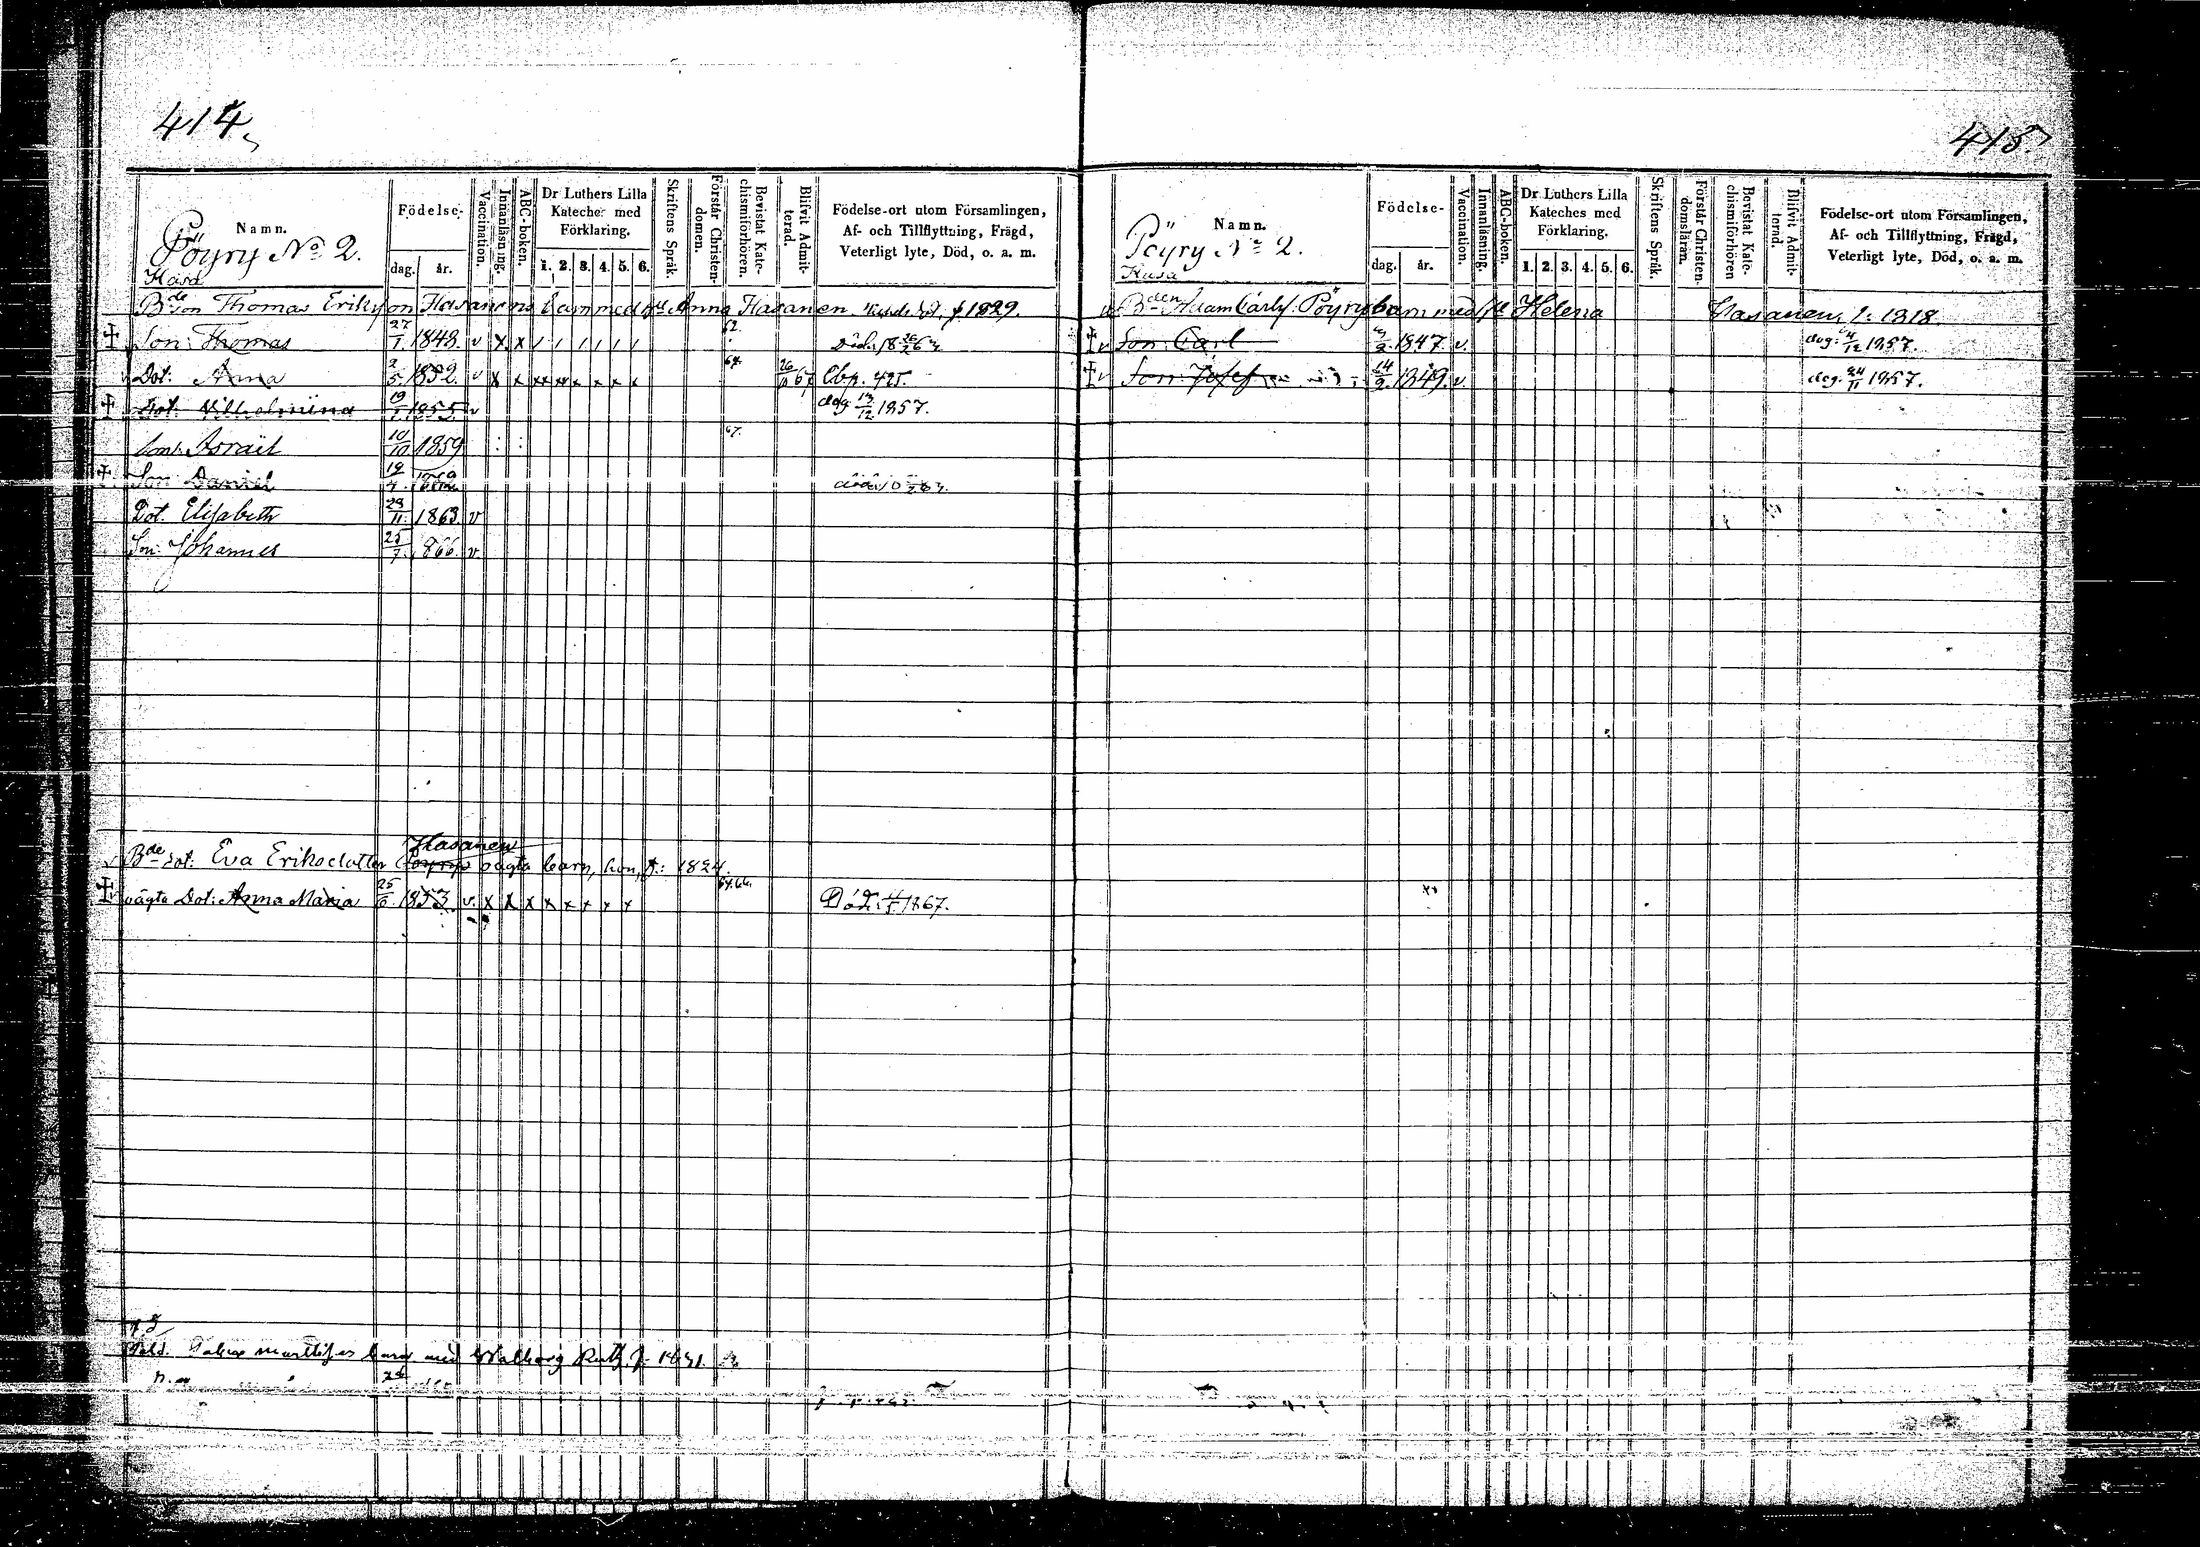 414.
Namn.
Pöyry No 2.
Hasa
Födelse-
dag. år.
Vaccination.
Innanläsning.
ABC-boken.
Dr Luthers Lilla
Kateches med
Förklaring.
1. 2. 3. 4. 5. 6.
Skriftens Språk.
Förstår Christen-
domen.
Bevistat Kate-
chismiförhören.
Blifvit Admit-
terad.
Födelse-ort utom Församlingen,
Af- och Tillflyttning, Frägd,
Veterligt lyte, Död, o. a. m.
Bde Son Thomas Eriksson Hasanens barn med Anna Hasanen f 1829.
Son: Thomas 27/1 1849 v x x 62.
Dot: Anna 2/5 1852. v x x xx xx x x x x 67. 26/10 67 Cbp. 425.
Dot: Vilhelmina 19/1 1855 v dog 13/12 1857.
Son: Israël 10/10 1859 67.
Son Daniel
Dot. Elisabeth 23/11 1863. v
Son: Johannes 25/7 1866. v.
Hasanen
Bde dot: Eva Eriksdotter Pöyrys oägta barn, hon, f: 1824.
oägta Dot: Anna Maria 25/6 1853 v. x x x x x x x x 64.66. Död: 4/5 1867.
barn med Walborg f. 1831.
415.
Namn.
Pöyry No 2.
Hasa
Födelse-
dag. år.
Vaccination.
Innanläsning.
ABC-boken.
Dr Luthers Lilla
Kateches med
Förklaring.
1. 2. 3. 4. 5. 6.
Skriftens Språk.
Förstår Christen-
domsläran.
Bevistat Kate-
chismiförhören
Blifvit Admit-
terad.
Födelse-ort utom Församlingen,
Af- och Tillflyttning, Frägd,
Veterligt lyte, Död, o. a. m.
Bden Adam Carls: Pöyrys barn med Helena Hasanen, f: 1818.
Son: Carl 1847. v. dog: 4/12 1857.
Son: Josef 14/9 1849. v. dog. 24/11 1857.